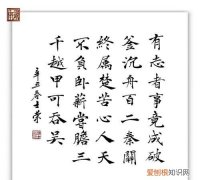 有志者事竟成破
釜沉舟百二秦關
終屬楚苦心人天
不負臥薪嘗膽三
千越甲可吞吴
辛丑春士荣
爱刨根知识网